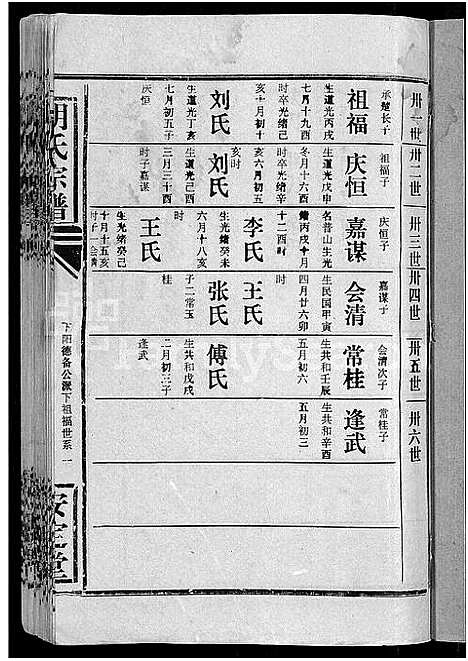 卅一世
卅二世
卅三世
卅四世
卅五世
卅六世
承楚长子
祖福
生道光丙戌
七月十九酉
时卒光绪己
亥十二月初十
时
刘氏
生道光丁亥
七月初五子
庆恒
祖福子
庆恒
生道光戊申
冬月十六寅
时卒光绪辛
亥六月初五
亥时
刘氏
生道光庚戌
三月三十酉
时子嘉谋
庆恒子
嘉谋
名普山生光
绪丙戌十月
十二酉时
李氏
生光绪癸未
六月十八亥
时
王氏
生光绪癸巳
十月十五亥
时子一会清
嘉谋子
会清
生民国甲寅
四月廿六卯
时
王氏
张氏
子二常玉
桂
会清次子
常桂
生共和壬辰
五月初六
傅氏
生共和戊戌
二月初三子
逢武
常桂子
逢武
生共和辛酉
五月初三
胡氏宗谱
下阳德备公派下祖福世系
一
安定堂